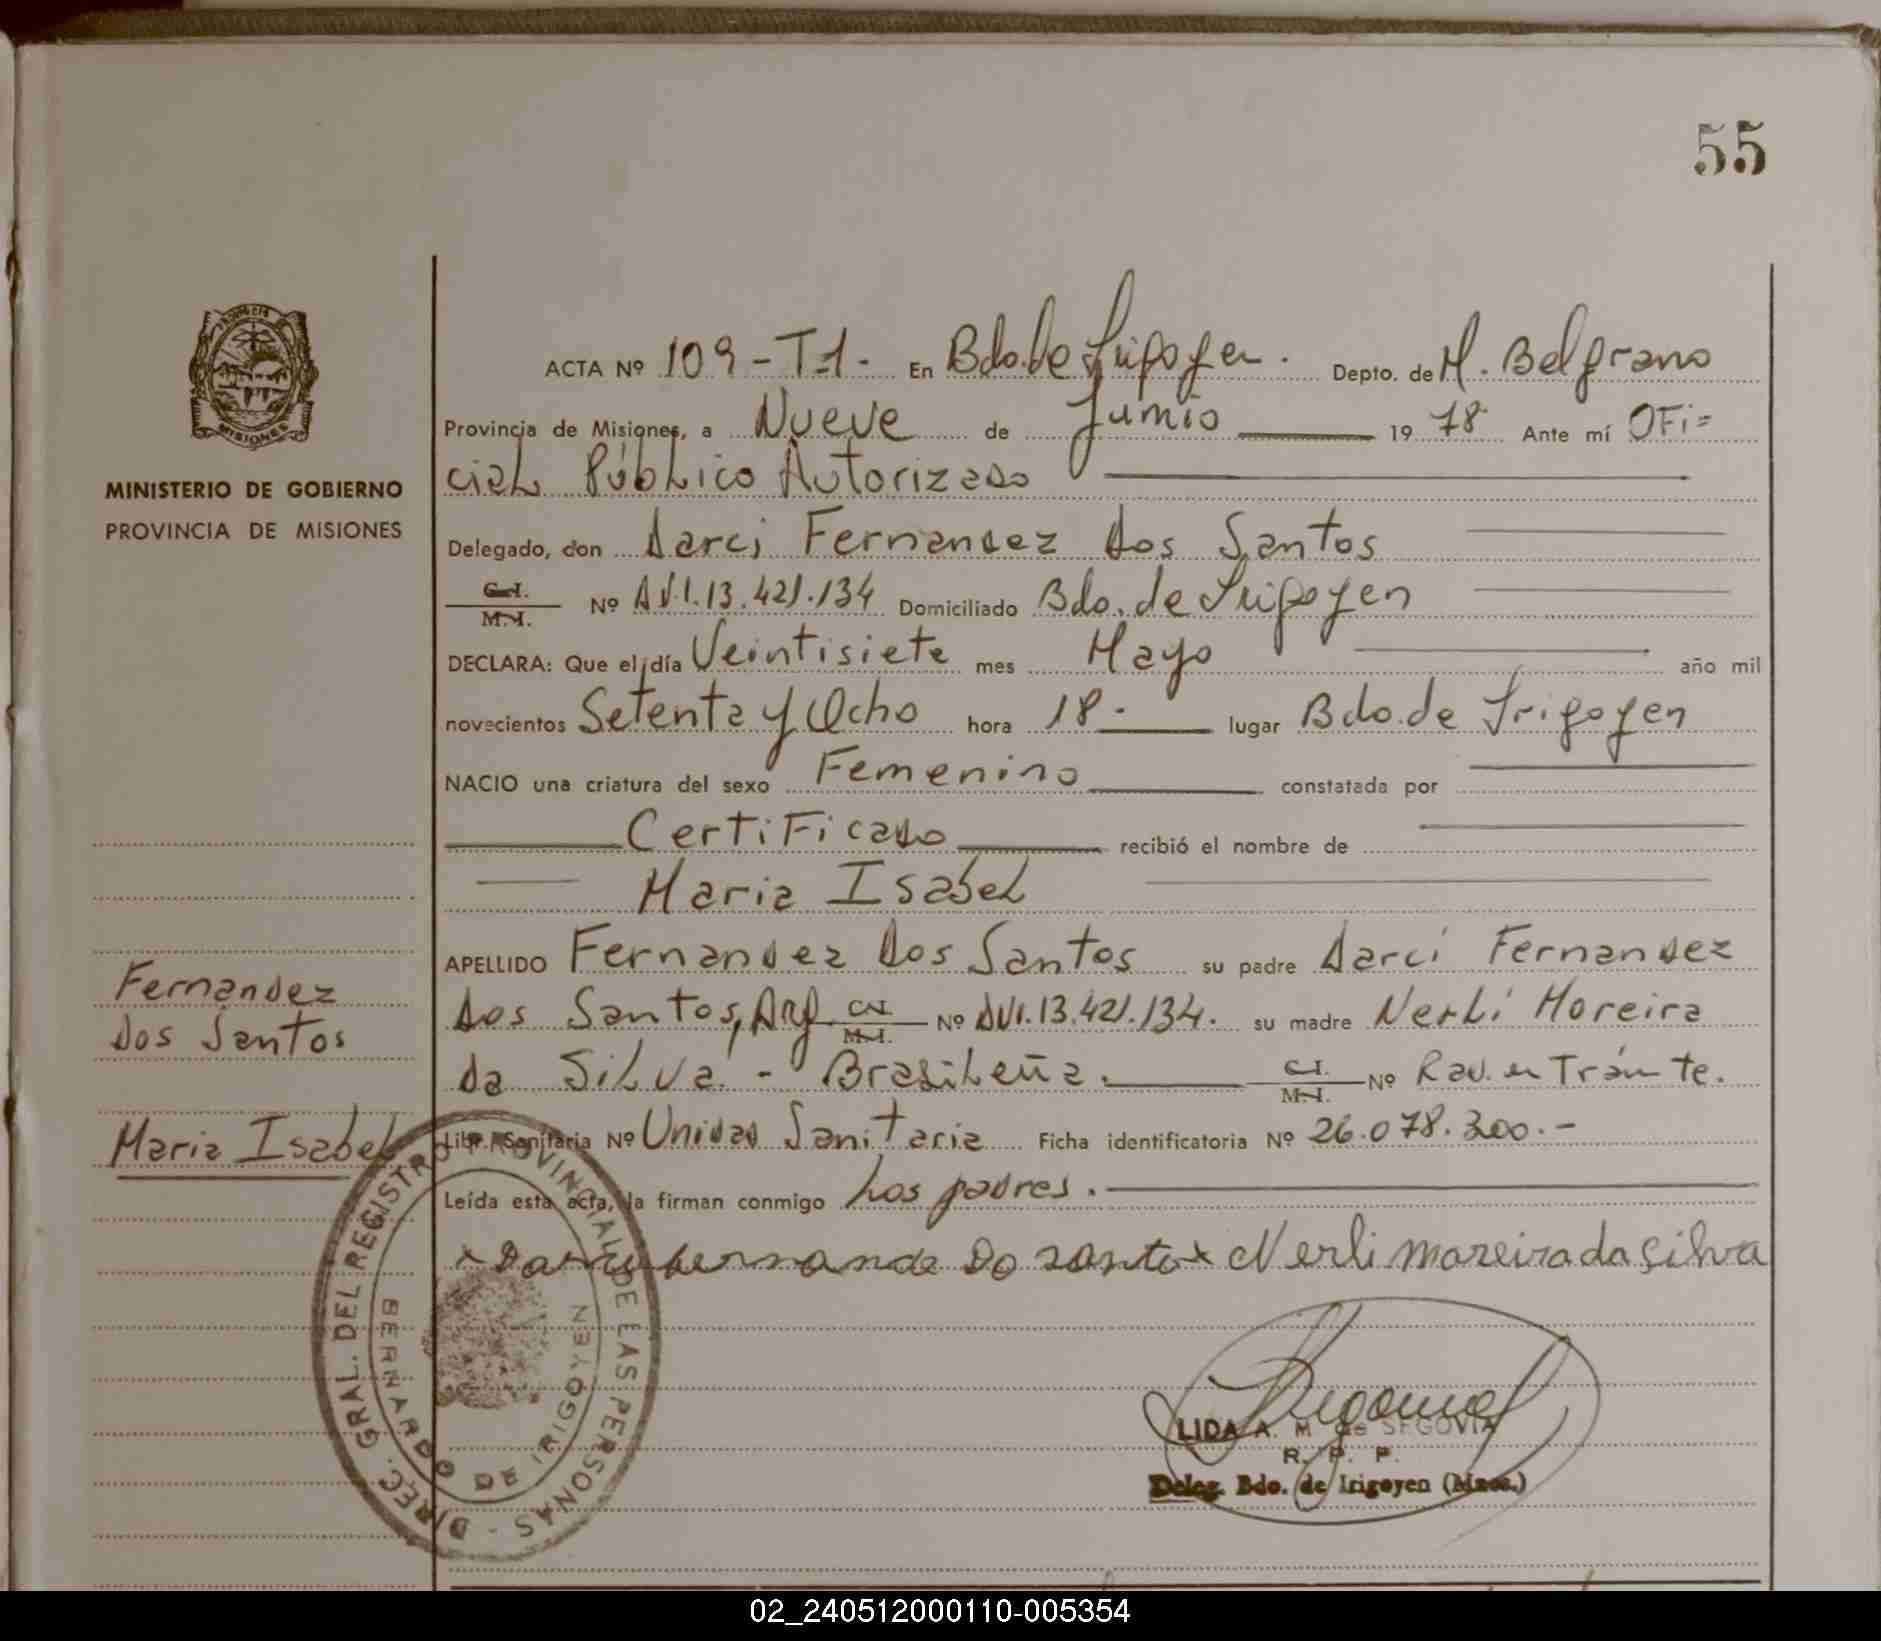 55
ACTA Nº 109-T1- En Bdo. de Irigoyen. Depto. de M. Belgrano
Provincia de Misiones, a Nueve de Junio 19 78 Ante mí OFi=
MINISTERIO DE GOBIERNO
PROVINCIA DE MISIONES
cial Público Autorizado
Delegado, don Darci Fernandez Dos Santos
C.I. M.I. Nº DNI.13.421.134 Domiciliado Bdo. de Irigoyen
DECLARA: Que el día Veintisiete mes Mayo año mil
novecientos Setenta y Ocho hora 18.- lugar Bdo. de Irigoyen
NACIO una criatura del sexo Femenino constatada por
Certificado recibió el nombre de
Maria Isabel
APELLIDO Fernandez Dos Santos su padre Darci Fernandez
Dos Santos, Arg. C.I. M.I. Nº DNI.13.421.134. su madre Nerli Moreira
da Silva - Brasileña. C.I. M.I. Nº Rad. en Trámite.
Libr. Sanitaria Nº Unidad Sanitaria Ficha identificatoria Nº 26.078.300.-
Leída esta acta, la firman conmigo Los padres.
Fernandez
Dos Santos
Maria Isabel
x Darcy fernande Do santo x Nerli moreira da silva
DIREC. GRAL. DEL REGISTRO PROVINCIAL DE LAS PERSONAS -
BERNARDO DE IRIGOYEN
LIDA A. M. de SEGOVIA
R. P. P.
Deleg. Bdo. de Irigoyen (Mnes.)
MISIONES
02_240512000110-005354